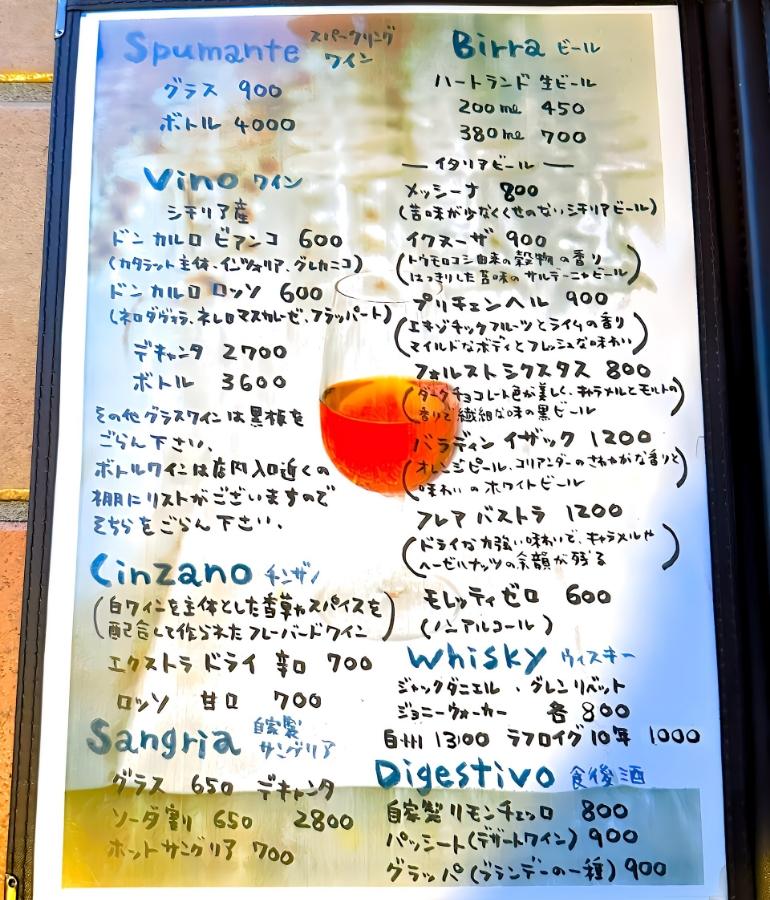 Spumante スパークリング
ワイン
グラス 900
ボトル 4000
Vino ワイン
シチリア産
ドン カルロ ビアンコ 600
(カタラット主体、インツォリア、グレカニコ)
ドン カルロ ロッソ 600
(ネロダヴォラ、ネレロマスカレーゼ、フラッパート)
デキャンタ 2700
ボトル 3600
その他グラスワインは黒板を
ごらん下さい、
ボトルワインは店内入口近くの
棚にリストがございますので
そちらをごらん下さい、
Cinzano チンザノ
(白ワインを主体とした香草やスパイスを
配合して作られたフレーバードワイン)
エクストラ ドライ 辛口 700
ロッソ 甘口 700
Sangria 自家製
サングリア
グラス 650 デキャンタ
ソーダ割り 650 2800
ホットサングリア 700
Birra ビール
ハートランド 生ビール
200ml 450
380ml 700
ー イタリアビール ー
メッシーナ 800
(苦味が少なくくせのない シチリアビール)
イクヌーザ 900
(トウモロコシ由来の穀物の香り
はっきりした苦味のサルデーニャビール)
プリチェンヘル 900
(エキゾチックフルーツとライムの香り
マイルドなボディとフレッシュな味わい)
フォルストシクスタス 800
(ダークチョコレート色が美しく、キャラメルとモルトの
香りで繊細な味の黒ビール)
バラディン イザック 1200
(オレンジピール、コリアンダーのさわやかな香りと
味わいのホワイトビール)
フレア バストラ 1200
(ドライな力強い味わいで、キャラメルや
ヘーゼルナッツの余韻が残る)
モレッティゼロ 600
(ノンアルコール)
Whisky ウィスキー
ジャックダニエル ・ グレンリベット
ジョニーウォーカー 各 800
白州 1300 ラフロイグ 10年 1000
Digestivo 食後酒
自家製 リモンチェッロ 800
パッシート(デザートワイン) 900
グラッパ(ブランデーの一種) 900